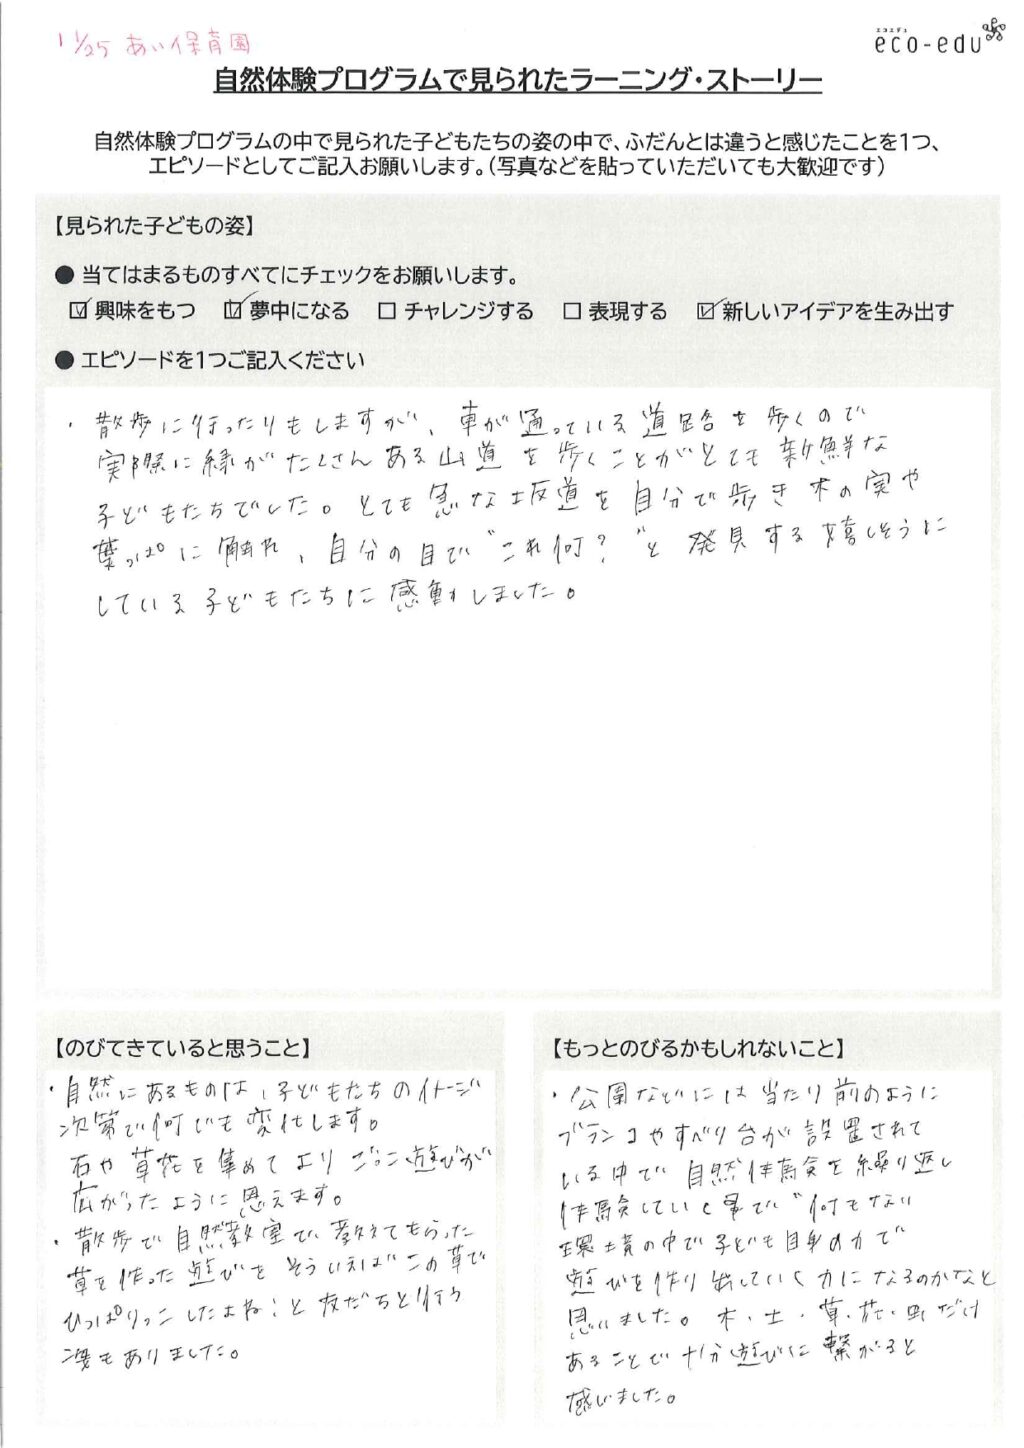 11/25 あい保育園
エコエデュ
eco-edu
自然体験プログラムで見られたラーニング・ストーリー
自然体験プログラムの中で見られた子どもたちの姿の中で、ふだんとは違うと感じたことを1つ、
エピソードとしてご記入お願いします。(写真などを貼っていただいても大歓迎です)
【見られた子どもの姿】
● 当てはまるものすべてにチェックをお願いします。
☑ 興味をもつ ☑ 夢中になる □ チャレンジする □ 表現する ☑ 新しいアイデアを生み出す
● エピソードを1つご記入ください
・散歩に行ったりもしますが、車が通っている道路を歩くので
実際に緑がたくさんある山道を歩くことがとても新鮮な
子どもたちでした。とても急な坂道を自分で歩き木の実や
葉っぱに触れ、自分の目で“これ何?”と発見する嬉しそうに
している子どもたちに感動しました。
【のびてきていると思うこと】
・自然にあるものは、子どもたちのイメージ
次第で何にでも変化します。
石や草花を集めてよりごっこ遊びが
広がったように思えます。
・散歩で自然教室で教えてもらった
草を作った遊びをそういえばこの草で
ひっぱりっこしたよね!と友だちと行う
姿もありました。
【もっとのびるかもしれないこと】
・公園などには当たり前のように
ブランコやすべり台が設置されて
いる中で自然体験を繰り返し
体験していく事で“何もない
環境の中で子ども自身の力で
遊びを作り出していく力になるのかなと
思いました。木・土・草・花・虫だけ
あることで十分遊びに繋がると
感じました。